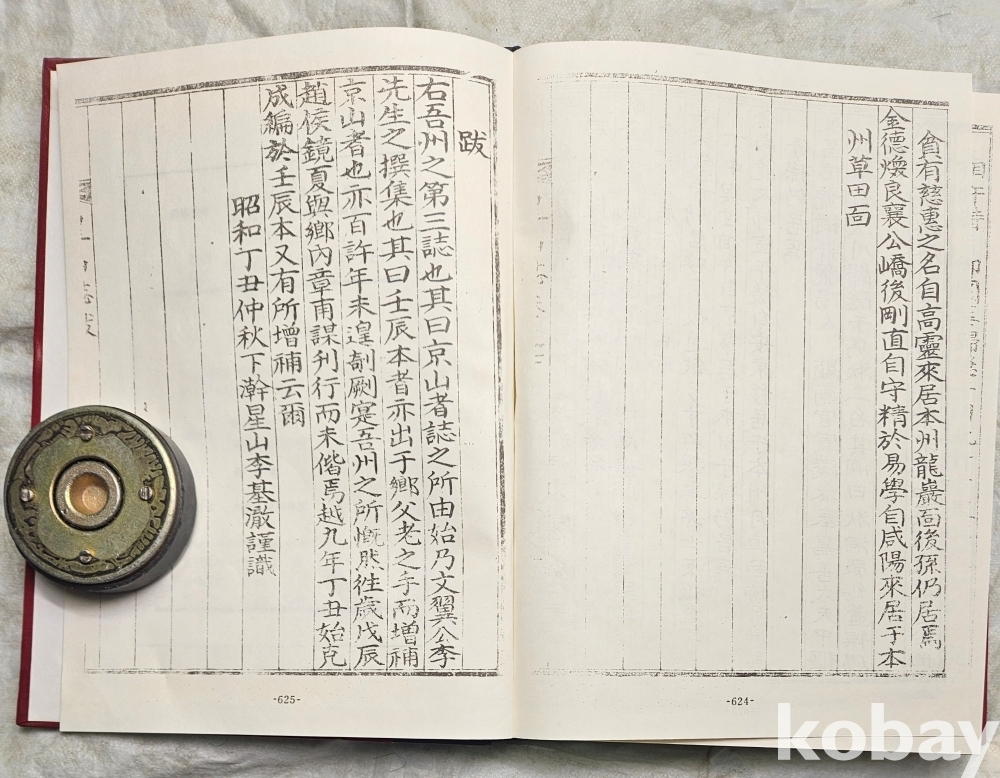 有慈惠之名自高靈來居本州龍巖面後孫仍居焉
金德煥良襄公嶠後剛直自守精於易學自咸陽來居于本
州草田面
-624-
跋
右吾州之第三誌也其曰京山者誌之所由始乃文翼公李
先生之撰集也其曰壬辰本者亦出于鄉父老之手而增補
京山者也亦百許年未遑剞劂寔吾州之所慨然徃歲戊辰
趙侯鏡夏與鄉內章甫謀刊行而未偕焉越九年丁丑始克
成編於壬辰本又有所增補云爾
昭和丁丑仲秋下澣星山李基澈謹識
-625-
kobay